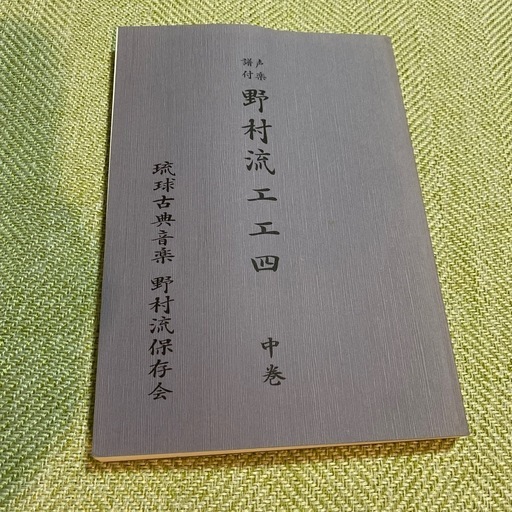 声楽
譜付
野村流工工四
中巻
琉球古典音楽 野村流保存会